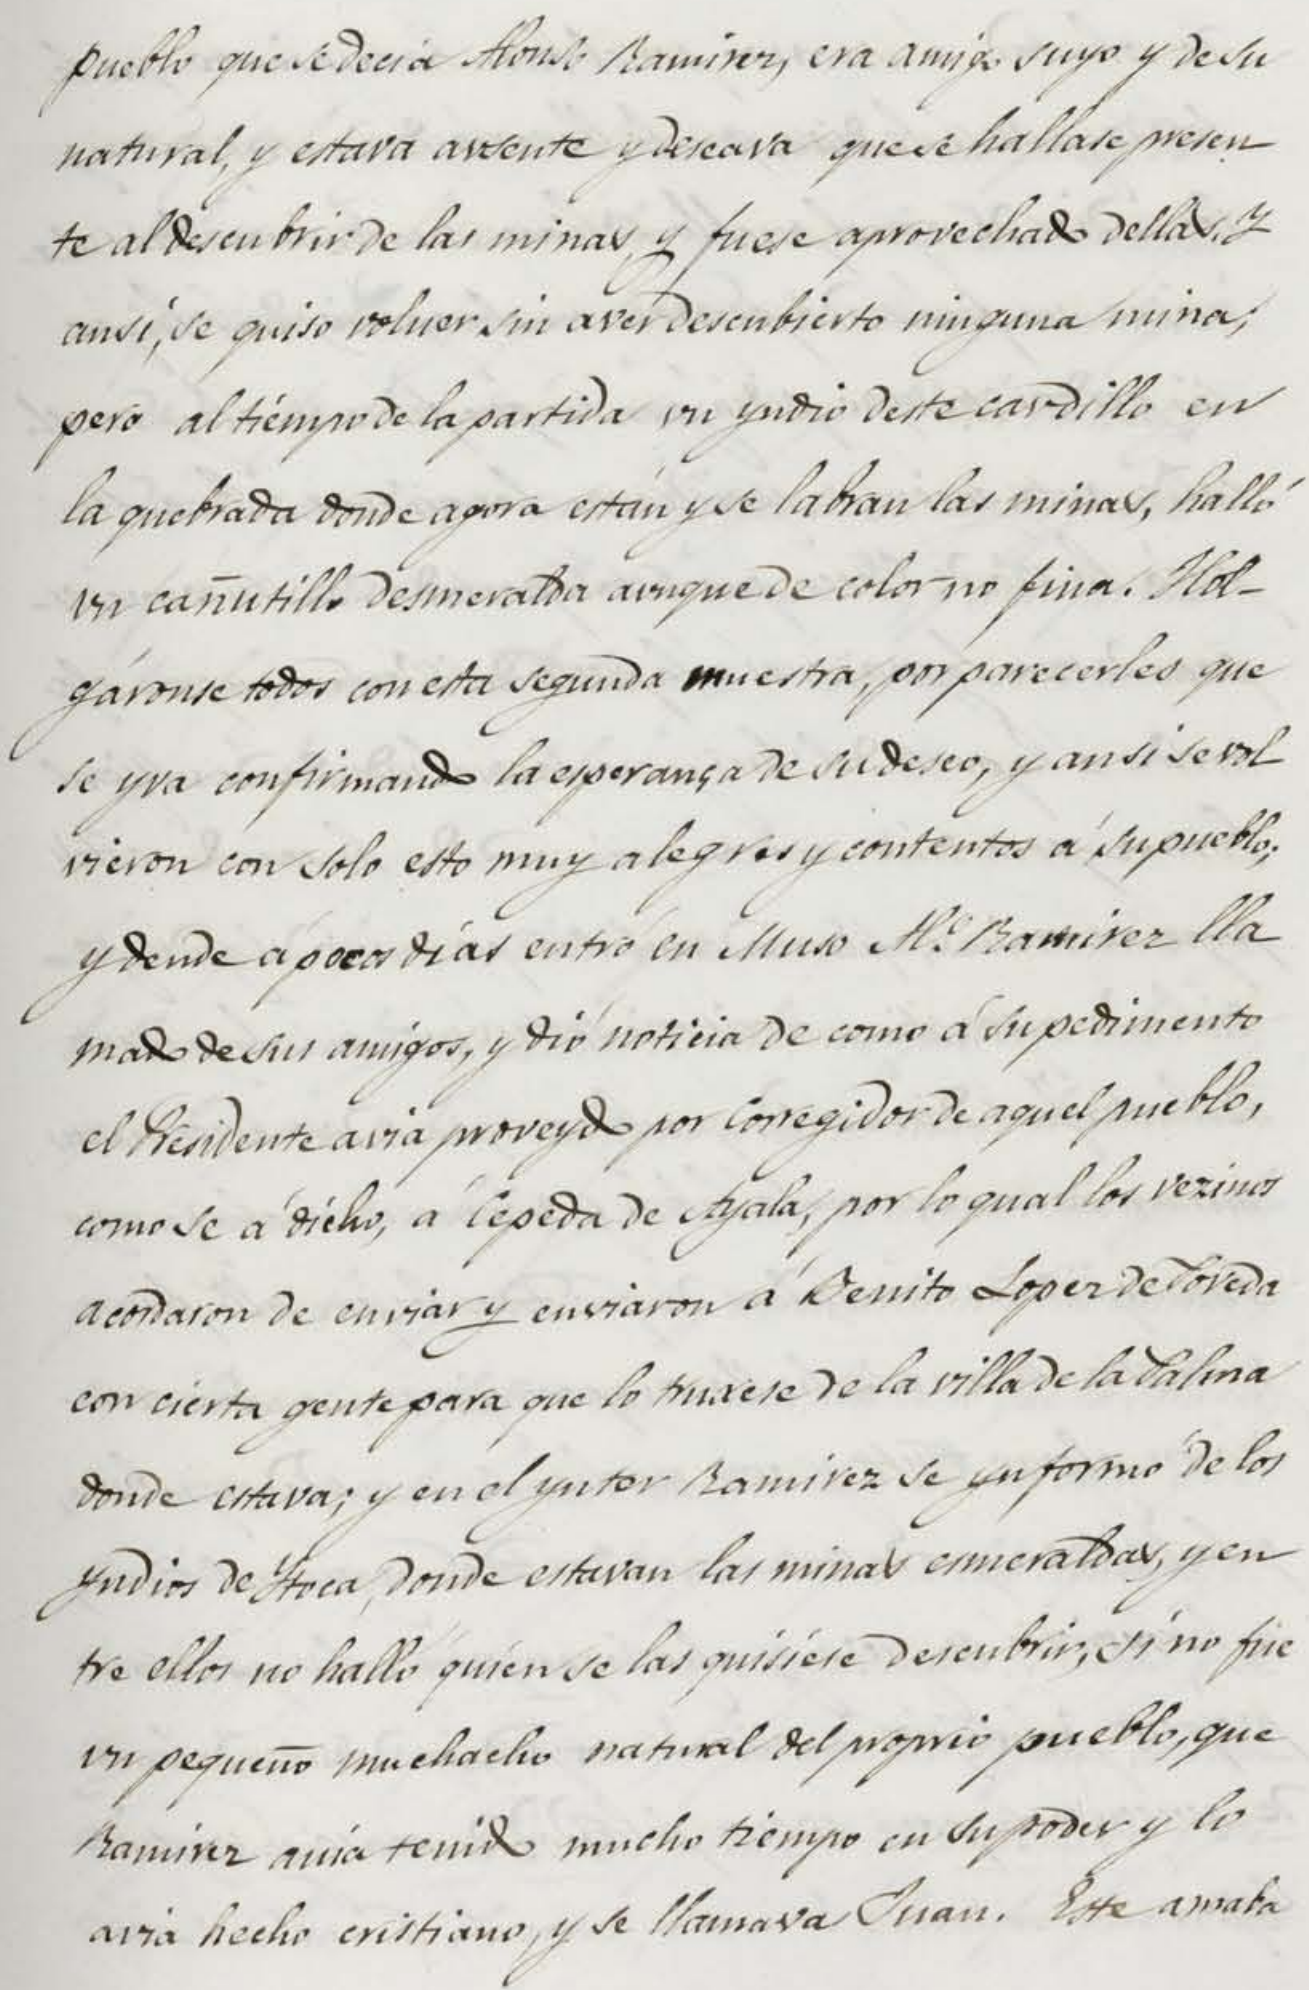 pueblo que se decia Alonso Ramirez, era amigo suyo y de su
natural, y estava avsente y deseava que se hallase presen
te al descubrir de las minas y fuese aprovechado dellas. Y
ansí, se quiso volver sin aver descubierto ninguna mina;
pero al tiémpo de la partida vn yndio deste cardillo en
la quebrada donde agora están y se labran las minas, halló
vn cañutillo desmeralda avnque de color no fina. Hol-
gáronse todos con esta segunda muestra, por parecerles que
se yva confirmando la esperança de su deseo, y ansi se vol
vieron con solo esto muy alegres y contentos á su pueblo;
y dende á pocos días entró en Muso Al.º Ramirez lla
mado de sus amigos, y dió noticia de como á su pedimento
el Presidente avia proveydo por Corregidor de aquel pueblo,
como se á dicho, á Cepeda de Ayala, por lo qual los vezinos
acordaron de enviar y enviaron á Benito Lopez de Poveda
con cierta gente para que lo truxese de la villa de la Palma
donde estava; y en el ynter Ramirez se ynformó de los
yndios de Ytoca, donde estavan las minas esmeraldas, y en
tre ellos no halló quién se las quisiese descubrir, si no fue
vn pequeño muchacho natural del proprio pueblo, que
Ramirez auia tenido mucho tiempo en su poder y lo
avia hecho cristiano, y se llamava Juan. Este amaba